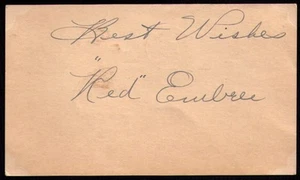 Best Wishes
"Red" Embree